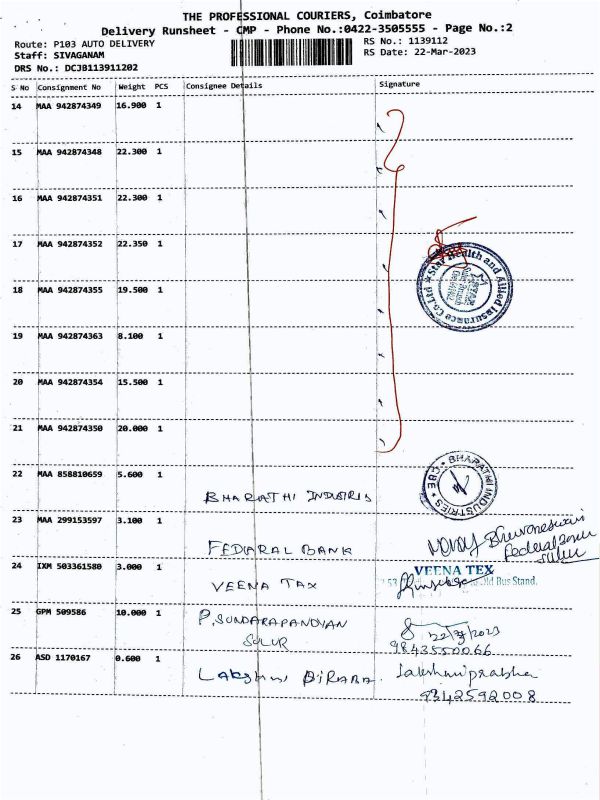 THE PROFESSIONAL COURIERS, Coimbatore
Delivery Runsheet - CMP - Phone No.:0422-3505555 - Page No.:2
Route: P103 AUTO DELIVERY
RS No.: 1139112
Staff: SIVAGANAM
RS Date: 22-Mar-2023
DRS No.: DCJB113911202
S No Consignment No Weight PCS Consignee Details Signature
14 MAA 942874349 16.900 1
15 MAA 942874348 22.300 1
16 MAA 942874351 22.300 1
17 MAA 942874352 22.350 1
Star Health and Allied Insurance Co.Ltd
18 MAA 942874355 19.500 1
19 MAA 942874363 8.100 1
20 MAA 942874354 15.500 1
21 MAA 942874350 20.000 1
22 MAA 858810659 5.600 1
BHARATHI INDUSTRIS
BHARATHI INDUSTRIES CBE
23 MAA 299153597 3.100 1
FEDIARAL BANK
Bhuvaneswari
24 IXM 503361580 3.000 1
VEENA TAX
VEENA TEX
Old Bus Stand.
25 GPM 509586 10.000 1
P. SUNDARAPANDYAN
SULUR
9843550066
26 ASD 1170167 0.600 1
Lakshmiprabha
9342592008